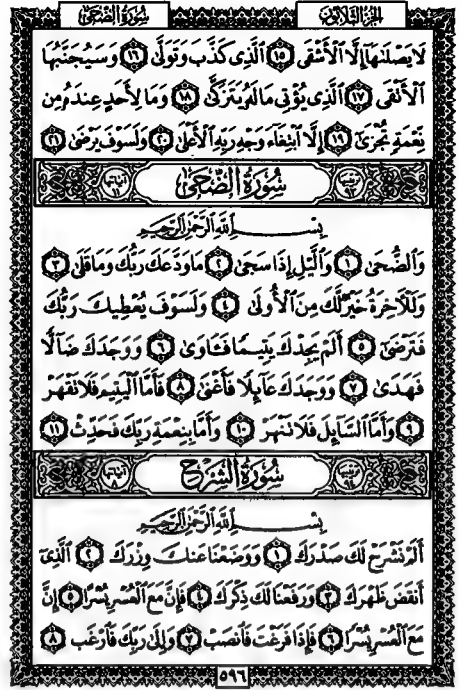 الجزء الثلاثون
سورة الضحى
لَا يَصْلَىٰهَآ إِلَّا ٱلْأَشْقَى ١٥ ٱلَّذِى كَذَّبَ وَتَوَلَّىٰ ١٦ وَسَيُجَنَّبُهَا
ٱلْأَتْقَى ١٧ ٱلَّذِى يُؤْتِى مَالَهُۥ يَتَزَكَّىٰ ١٨ وَمَا لِأَحَدٍ عِندَهُۥ مِن
نِّعْمَةٍ تُجْزَىٰٓ ١٩ إِلَّا ٱبْتِغَآءَ وَجْهِ رَبِّهِ ٱلْأَعْلَىٰ ٢٠ وَلَسَوْفَ يَرْضَىٰ ٢١
سُورَةُ الضُّحَىٰ
آياتها ١١
بِسْمِ ٱللَّهِ ٱلرَّحْمَٰنِ ٱلرَّحِيمِ
وَٱلضُّحَىٰ ١ وَٱلَّيْلِ إِذَا سَجَىٰ ٢ مَا وَدَّعَكَ رَبُّكَ وَمَا قَلَىٰ ٣
وَلَلْأٓخِرَةُ خَيْرٌ لَّكَ مِنَ ٱلْأُولَىٰ ٤ وَلَسَوْفَ يُعْطِيكَ رَبُّكَ
فَتَرْضَىٰٓ ٥ أَلَمْ يَجِدْكَ يَتِيمًا فَـَٔاوَىٰ ٦ وَوَجَدَكَ ضَآلًّا
فَهَدَىٰ ٧ وَوَجَدَكَ عَآئِلًا فَأَغْنَىٰ ٨ فَأَمَّا ٱلْيَتِيمَ فَلَا تَقْهَرْ
٩ وَأَمَّا ٱلسَّآئِلَ فَلَا تَنْهَرْ ١٠ وَأَمَّا بِنِعْمَةِ رَبِّكَ فَحَدِّثْ ١١
سُورَةُ الشَّرْحِ
آياتها ٨
بِسْمِ ٱللَّهِ ٱلرَّحْمَٰنِ ٱلرَّحِيمِ
أَلَمْ نَشْرَحْ لَكَ صَدْرَكَ ١ وَوَضَعْنَا عَنكَ وِزْرَكَ ٢ ٱلَّذِىٓ
أَنقَضَ ظَهْرَكَ ٣ وَرَفَعْنَا لَكَ ذِكْرَكَ ٤ فَإِنَّ مَعَ ٱلْعُسْرِ يُسْرًا ٥ إِنَّ
مَعَ ٱلْعُسْرِ يُسْرًا ٦ فَإِذَا فَرَغْتَ فَٱنصَبْ ٧ وَإِلَىٰ رَبِّكَ فَٱرْغَب ٨
٥٩٦